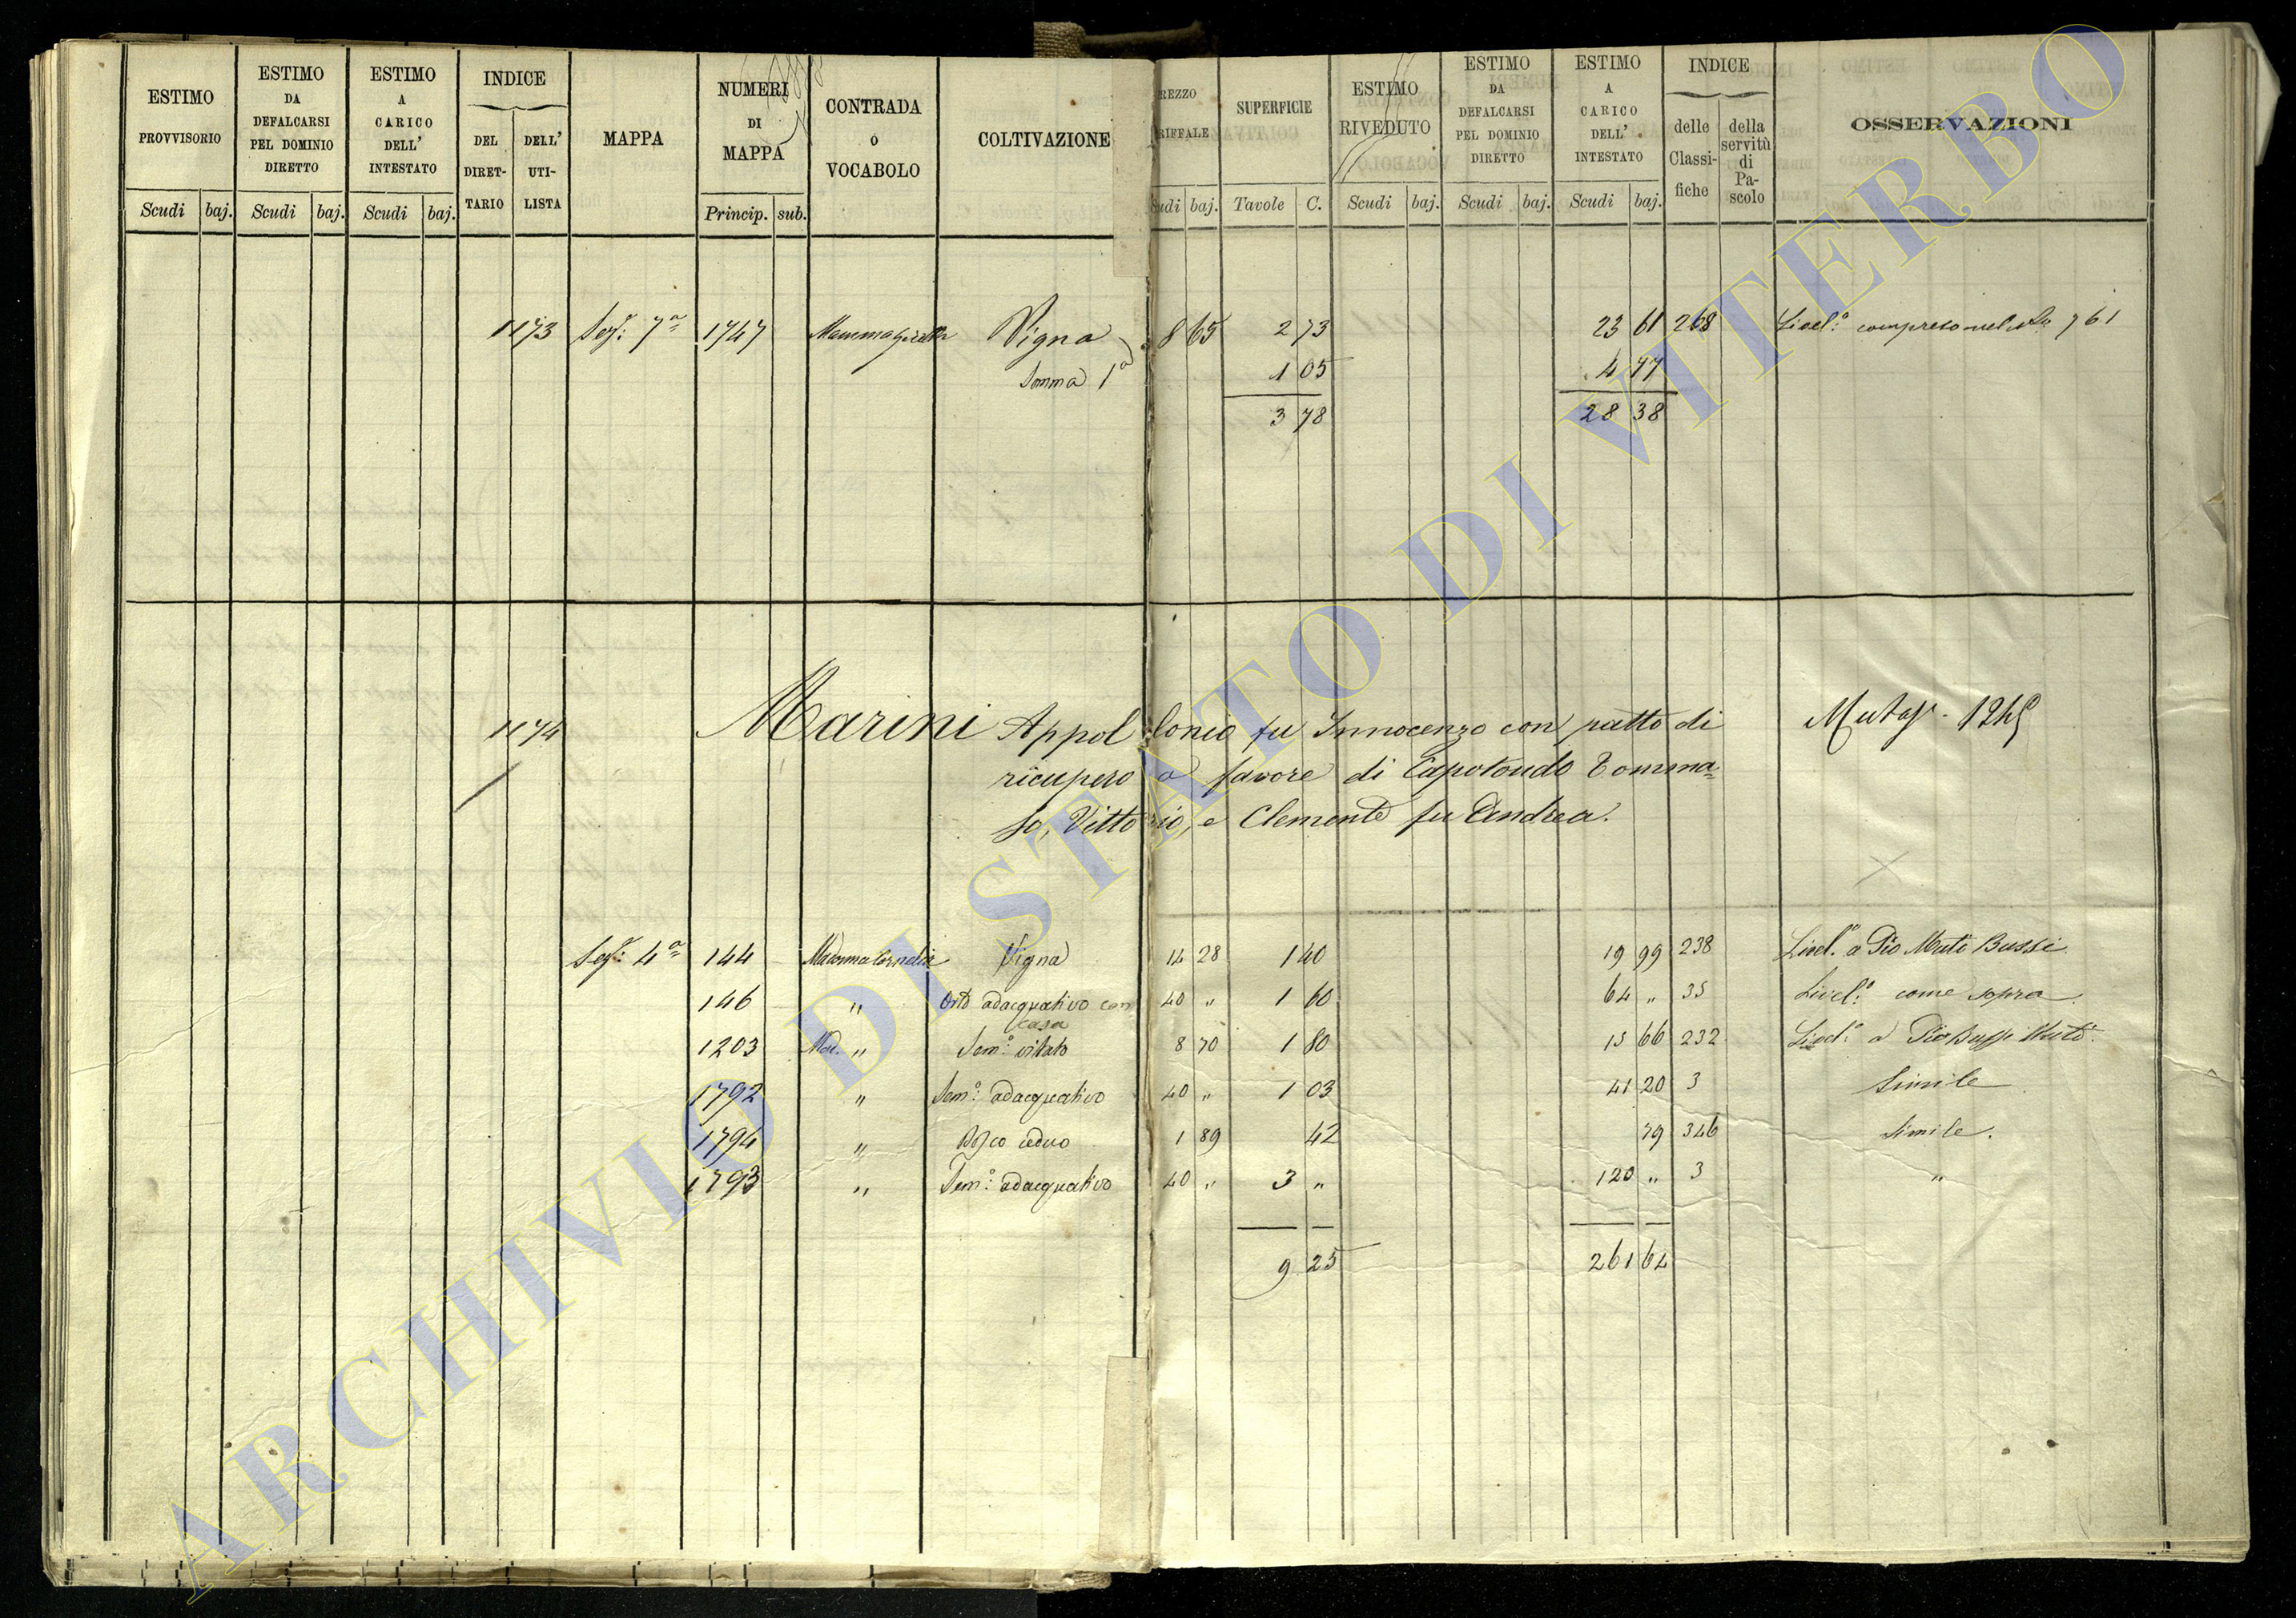 ESTIMO PROVVISORIO
Scudi baj.
ESTIMO DA DEFALCARSI PEL DOMINIO DIRETTO
Scudi baj.
ESTIMO A CARICO DELL' INTESTATO
Scudi baj.
INDICE
DEL DIRET-TARIO
DELL' UTI-LISTA
MAPPA
NUMERI DI MAPPA
Princip. sub.
CONTRADA O VOCABOLO
COLTIVAZIONE
REZZO RIFFALE
udi baj.
SUPERFICIE
Tavole C.
ESTIMO RIVEDUTO
Scudi baj.
ESTIMO DA DEFALCARSI PEL DOMINIO DIRETTO
Scudi baj.
ESTIMO A CARICO DELL' INTESTATO
Scudi baj.
INDICE
delle Classi-fiche
della servitù di Pa-scolo
OSSERVAZIONI
1173 Sez: 7ª 1747 Vigna 8 65 2 73 23 61 268 Livel:º compreso 761
Somma 1ª 1 05 4 77
3 78 28 38
1174 Marini Appollonio fu Innocenzo con patto di Mutaz. 1245
ricupero a favore di Capotondo Tomma=
so, Vittorio, e Clemente fu Andrea.
Sez: 4ª 144 Madonna Cornelia Vigna 14 28 1 40 19 99 238 Livel.º a Pio Muto Bussi
146 " Orto adacquativo con casa 40 " 1 60 64 " 35 Livel:º come sopra
1203 Mad. " Sem:º vitato 8 70 1 80 15 66 232 Livel:º a Pio Bussi Muti
1792 " Sem:º adacquativo 40 " 1 03 41 20 3 Simile
1794 " Bosco ceduo 1 89 42 79 346 Simile.
1793 " Sem:º adacquativo 40 " 3 " 120 " 3 "
9 25 261 64
ARCHIVIO DI STATO DI VITERBO